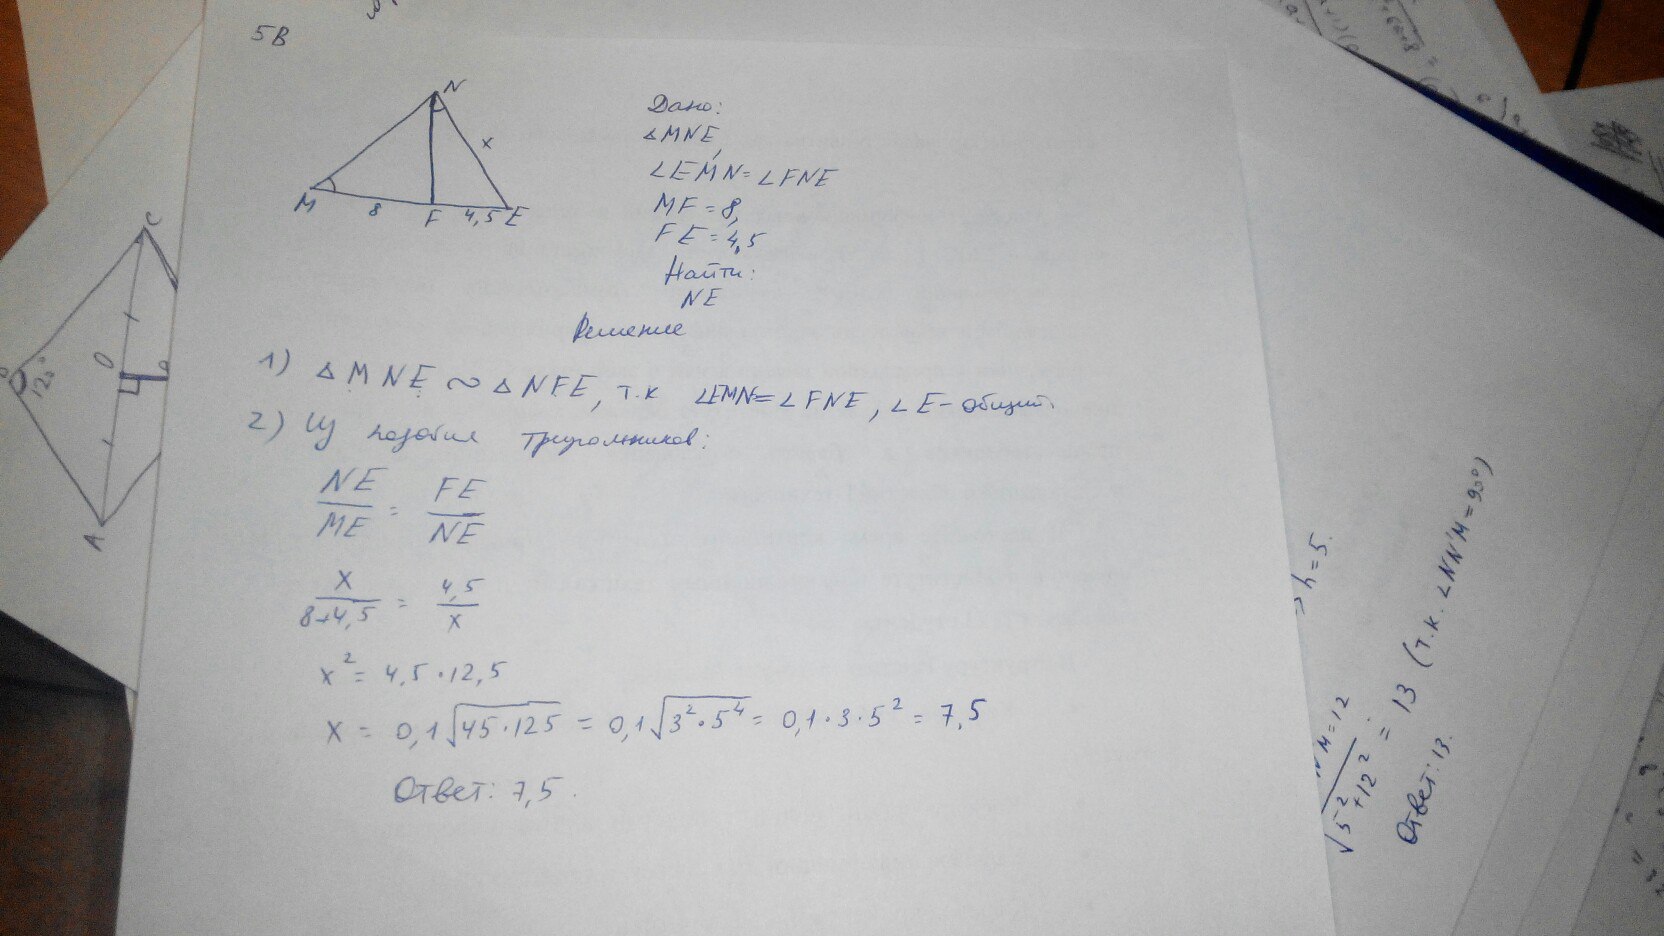 5В
N
x
M
8
F
4,5
E
Дано:
△MNE,
∠EMN=∠FNE
MF=8,
FE=4,5
Найти:
NE
Решение
1) △MNE ∾ △NFE, т.к ∠EMN=∠FNE, ∠E-общий.
2) Из подобия треугольников:
NE/ME = FE/NE
x/(8+4,5) = 4,5/x
x²= 4,5·12,5
x = 0,1√(45·125) = 0,1√(3²·5⁴) = 0,1·3·5² = 7,5
Ответ: 7,5.
C
O
120°
A
h=5.
M=12
√(5²+12²) = 13 (т.к. ∠NN'M=90°)
Ответ: 13.